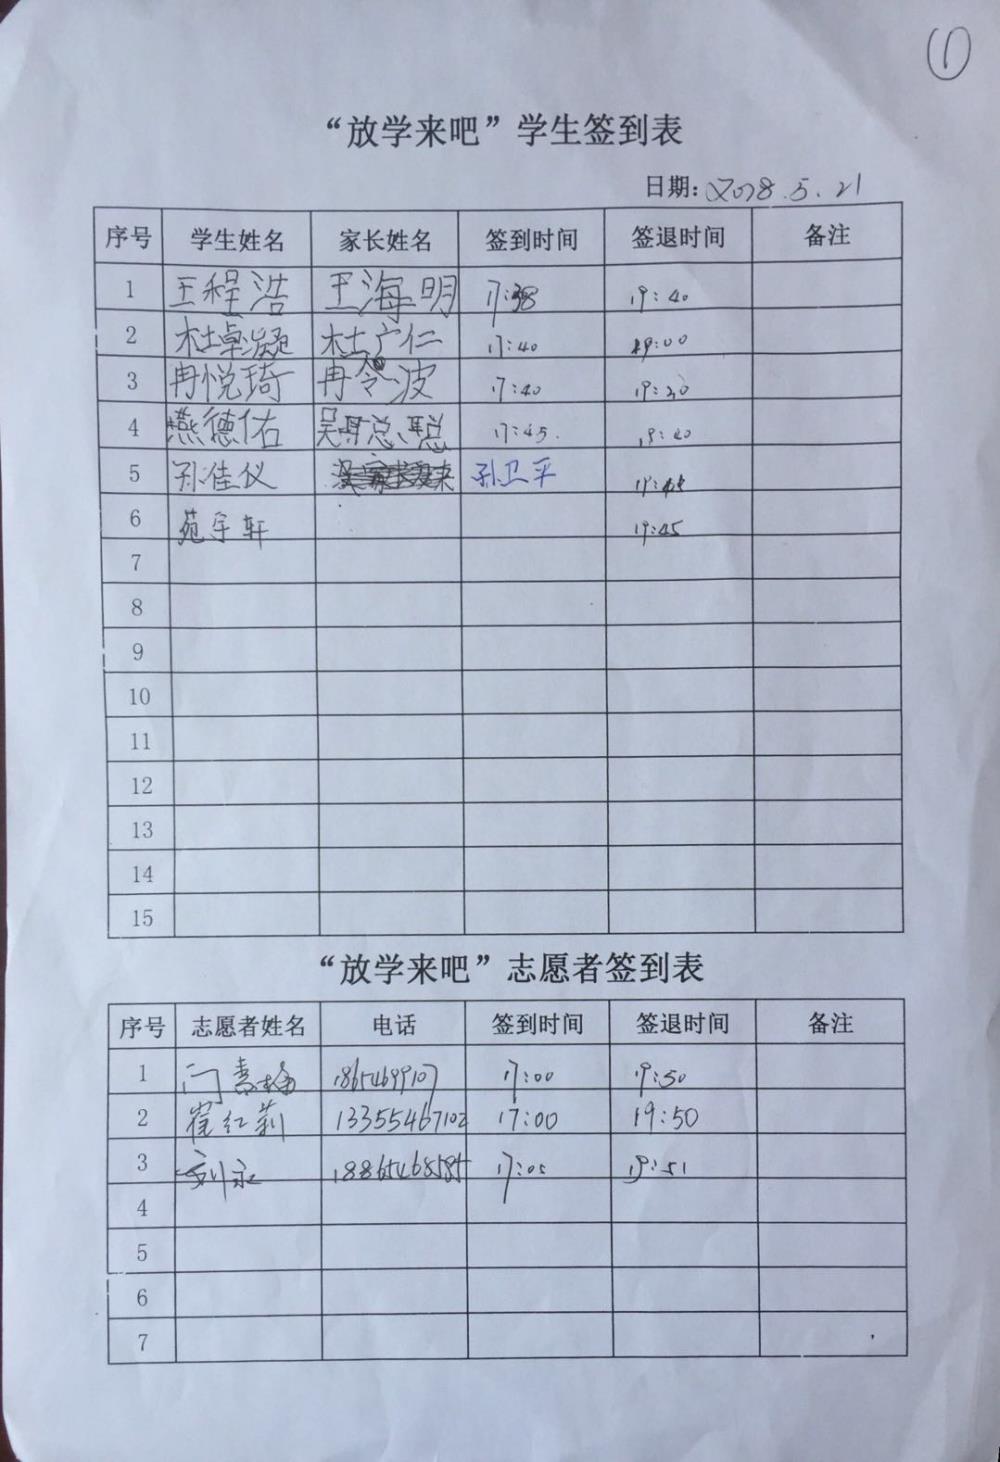 ①
“放学来吧”学生签到表
日期：2018.5.21
序号 学生姓名 家长姓名 签到时间 签退时间 备注
1 王程浩 王海明 17:38 19:40
2 杜卓凝 杜广仁 17:40 19:00
3 冉悦琦 冉令波 17:40 19:30
4 燕德佑 吴聪聪 17:45. 19:40
5 孙佳仪 孙卫平 19:45
6 苑宇轩 19:45
7
8
9
10
11
12
13
14
15
“放学来吧”志愿者签到表
序号 志愿者姓名 电话 签到时间 签退时间 备注
1 17:00 19:50
2 崔红莉 13355467102 17:00 19:50
3 刘永 18865468585 17:05 19:51
4
5
6
7